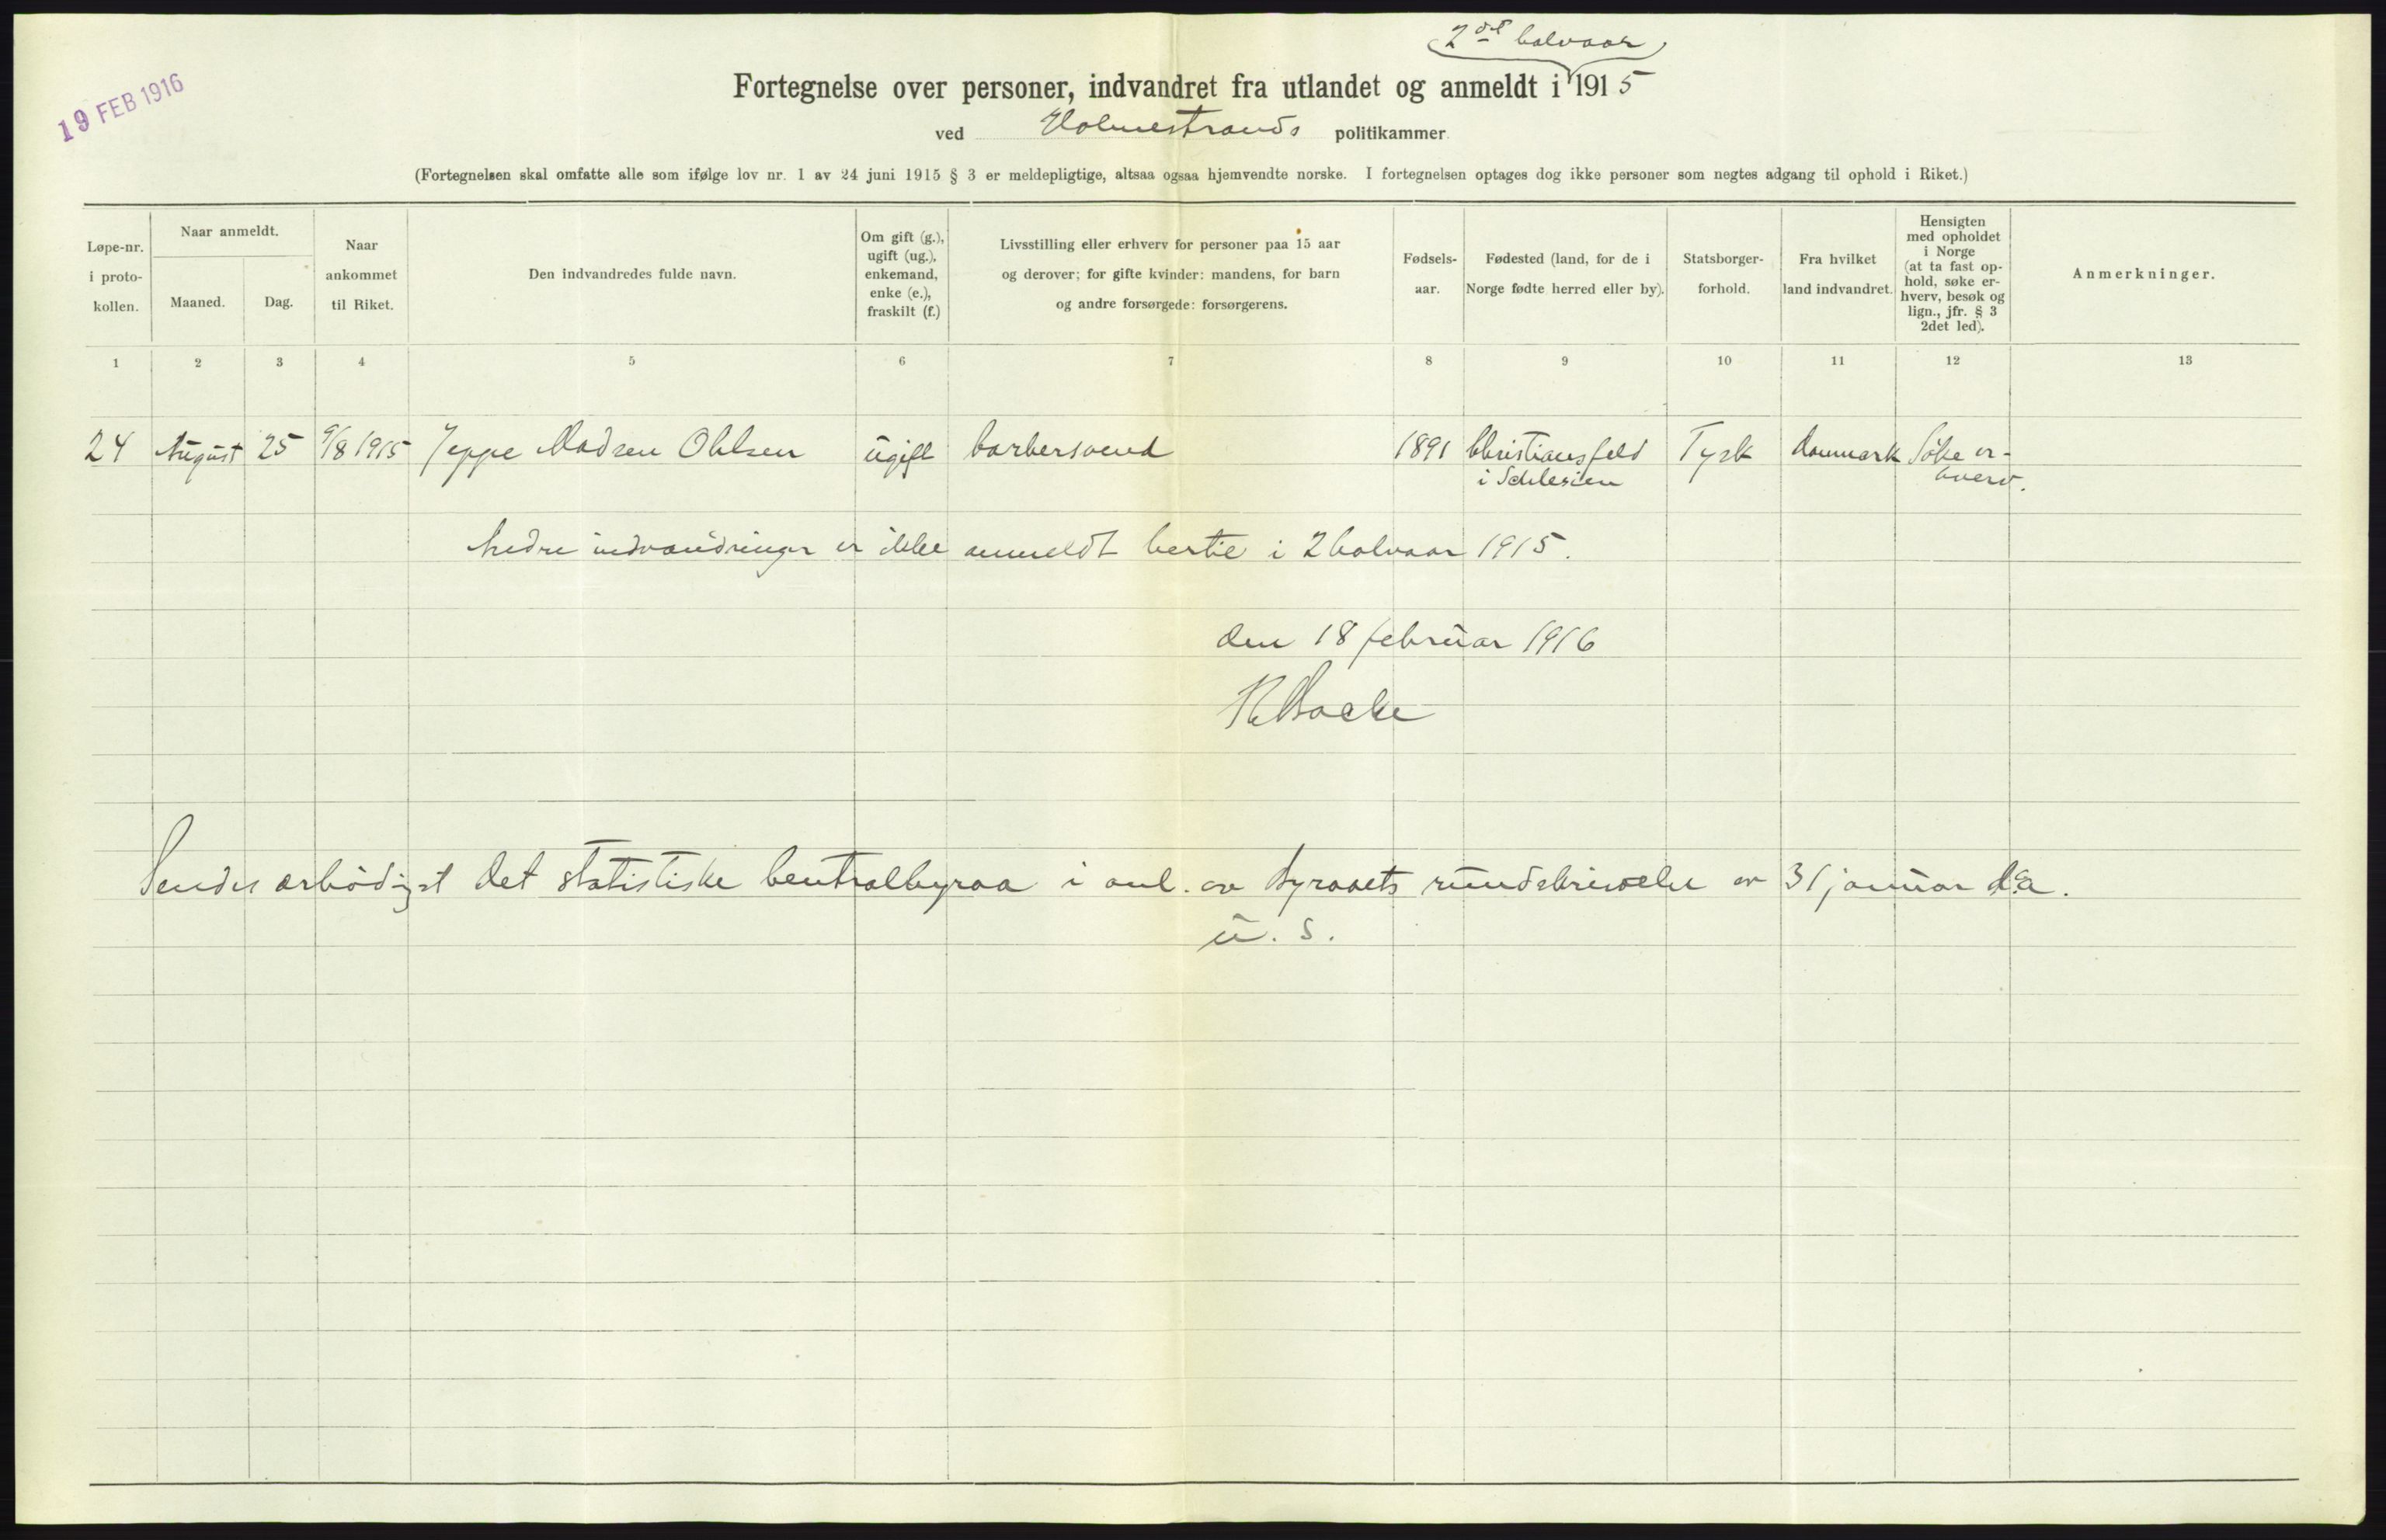 2det halvaar
19 FEB 1916
Fortegnelse over personer, indvandret fra utlandet og anmeldt i 1915
ved Holmestrands politikammer
(Fortegnelsen skal omfatte alle som ifølge lov nr. 1 av 24 juni 1915 § 3 er meldepligtige, altsaa ogsaa hjemvendte norske. I fortegnelsen optages dog ikke personer som negtes adgang til ophold i Riket.)
Løpe-nr.
i proto-
kollen.
Naar anmeldt.
Maaned.
Dag.
Naar
ankommet
til Riket.
Den indvandredes fulde navn.
Om gift (g.),
ugift (ug.),
enkemand,
enke (e.),
fraskilt (f.)
Livsstilling eller erhverv for personer paa 15 aar
og derover; for gifte kvinder: mandens, for barn
og andre forsørgede: forsørgerens.
Fødsels-
aar.
Fødested (land, for de i
Norge fødte herred eller by).
Statsborger-
forhold.
Fra hvilket
land indvandret.
Hensigten
med opholdet
i Norge
(at ta fast op-
hold, søke er-
hverv, besøk og
lign., jfr. § 3
2det led).
Anmerkninger.
1 2 3 4 5 6 7 8 9 10 11 12 13
24 August 25 9/8 1915 Jeppe Madsen Ohlsen ugift barbersvend 1891 Christiansfeld Tysk Danmark Söke er-
i Schlesien hverv.
Andre indvandringer er ikke anmeldt hertil i 2 halvaar 1915.
den 18 februar 1916
Sendes ærbødigst det statistiske Centralbyraa i anl. av Byraaets rundskrivelse av 31 januar d.a.
u. s.